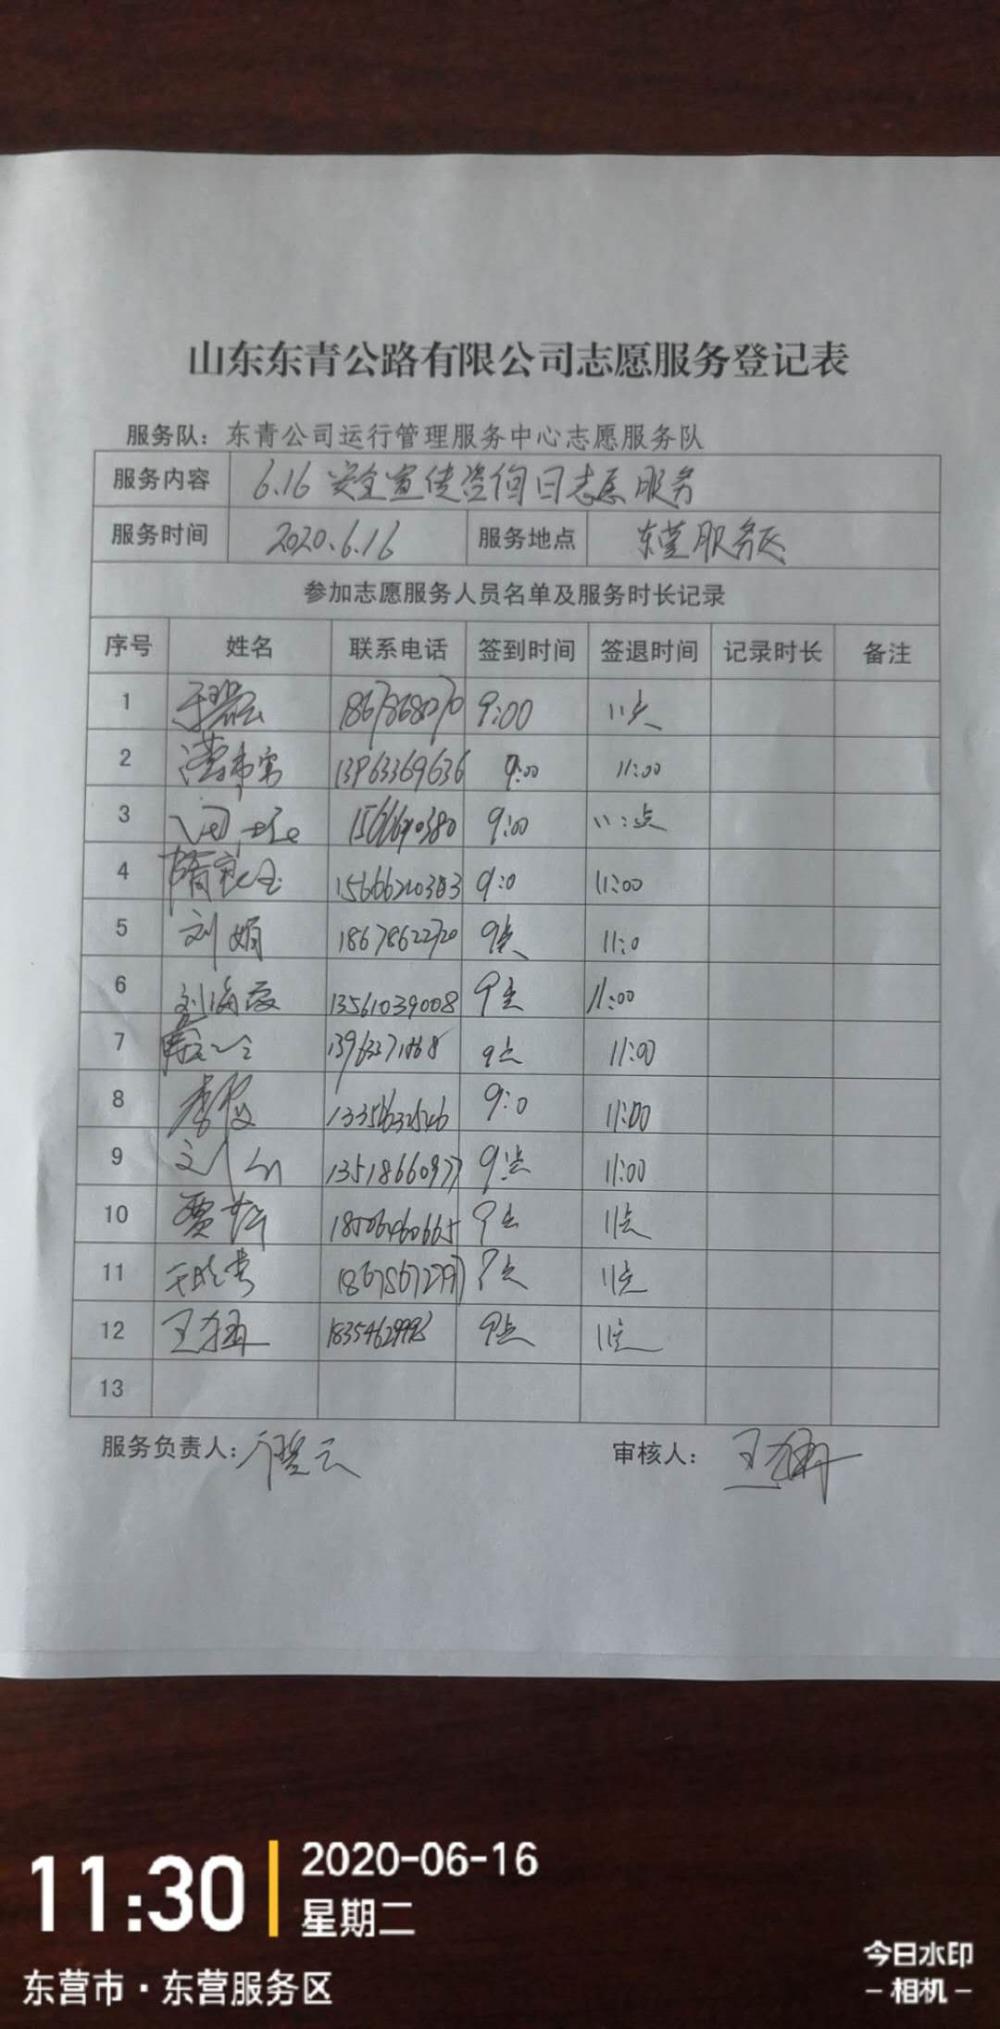 山东东青公路有限公司志愿服务登记表
服务队：东青公司运行管理服务中心志愿服务队
服务内容 6.16 安全宣传咨询日志愿服务
服务时间 2020.6.16 服务地点 东营服务区
参加志愿服务人员名单及服务时长记录
序号 姓名 联系电话 签到时间 签退时间 记录时长 备注
1 9:00 11点
2 13963369636 9:00 11:00
3 9:00 11:点
4 15666210383 9:0 11:00
5 刘娟 18678622720 9点 11:0
6 刘海霞 13561039008 9点 11:00
7 9点 11:00
8 李俊 9:0 11:00
9 13518660977 9点 11:00
10 贾 18506460665 9点 11点
11 9点 11点
12 王 9点 11点
13
服务负责人： 审核人：王
11:30
2020-06-16
星期二
东营市·东营服务区
今日水印
-相机-